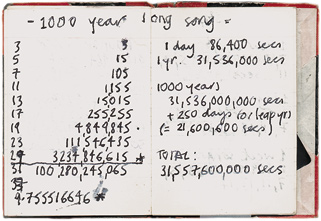 - 1000 year long song =
3 3
5 15
7 105
11 1155
13 15015
17 255255
19 4,849,845.
23 111546435
29 3237,846,615 *
31 100,280,245,065
9.755516646 *
1 day 86,400 secs
1 yr. 31,536,000 secs
1000 years
31,536,000,000 secs
+ 250 days (for leap yr)
(= 21,600,600 secs)
TOTAL:
31,557,600,000 secs